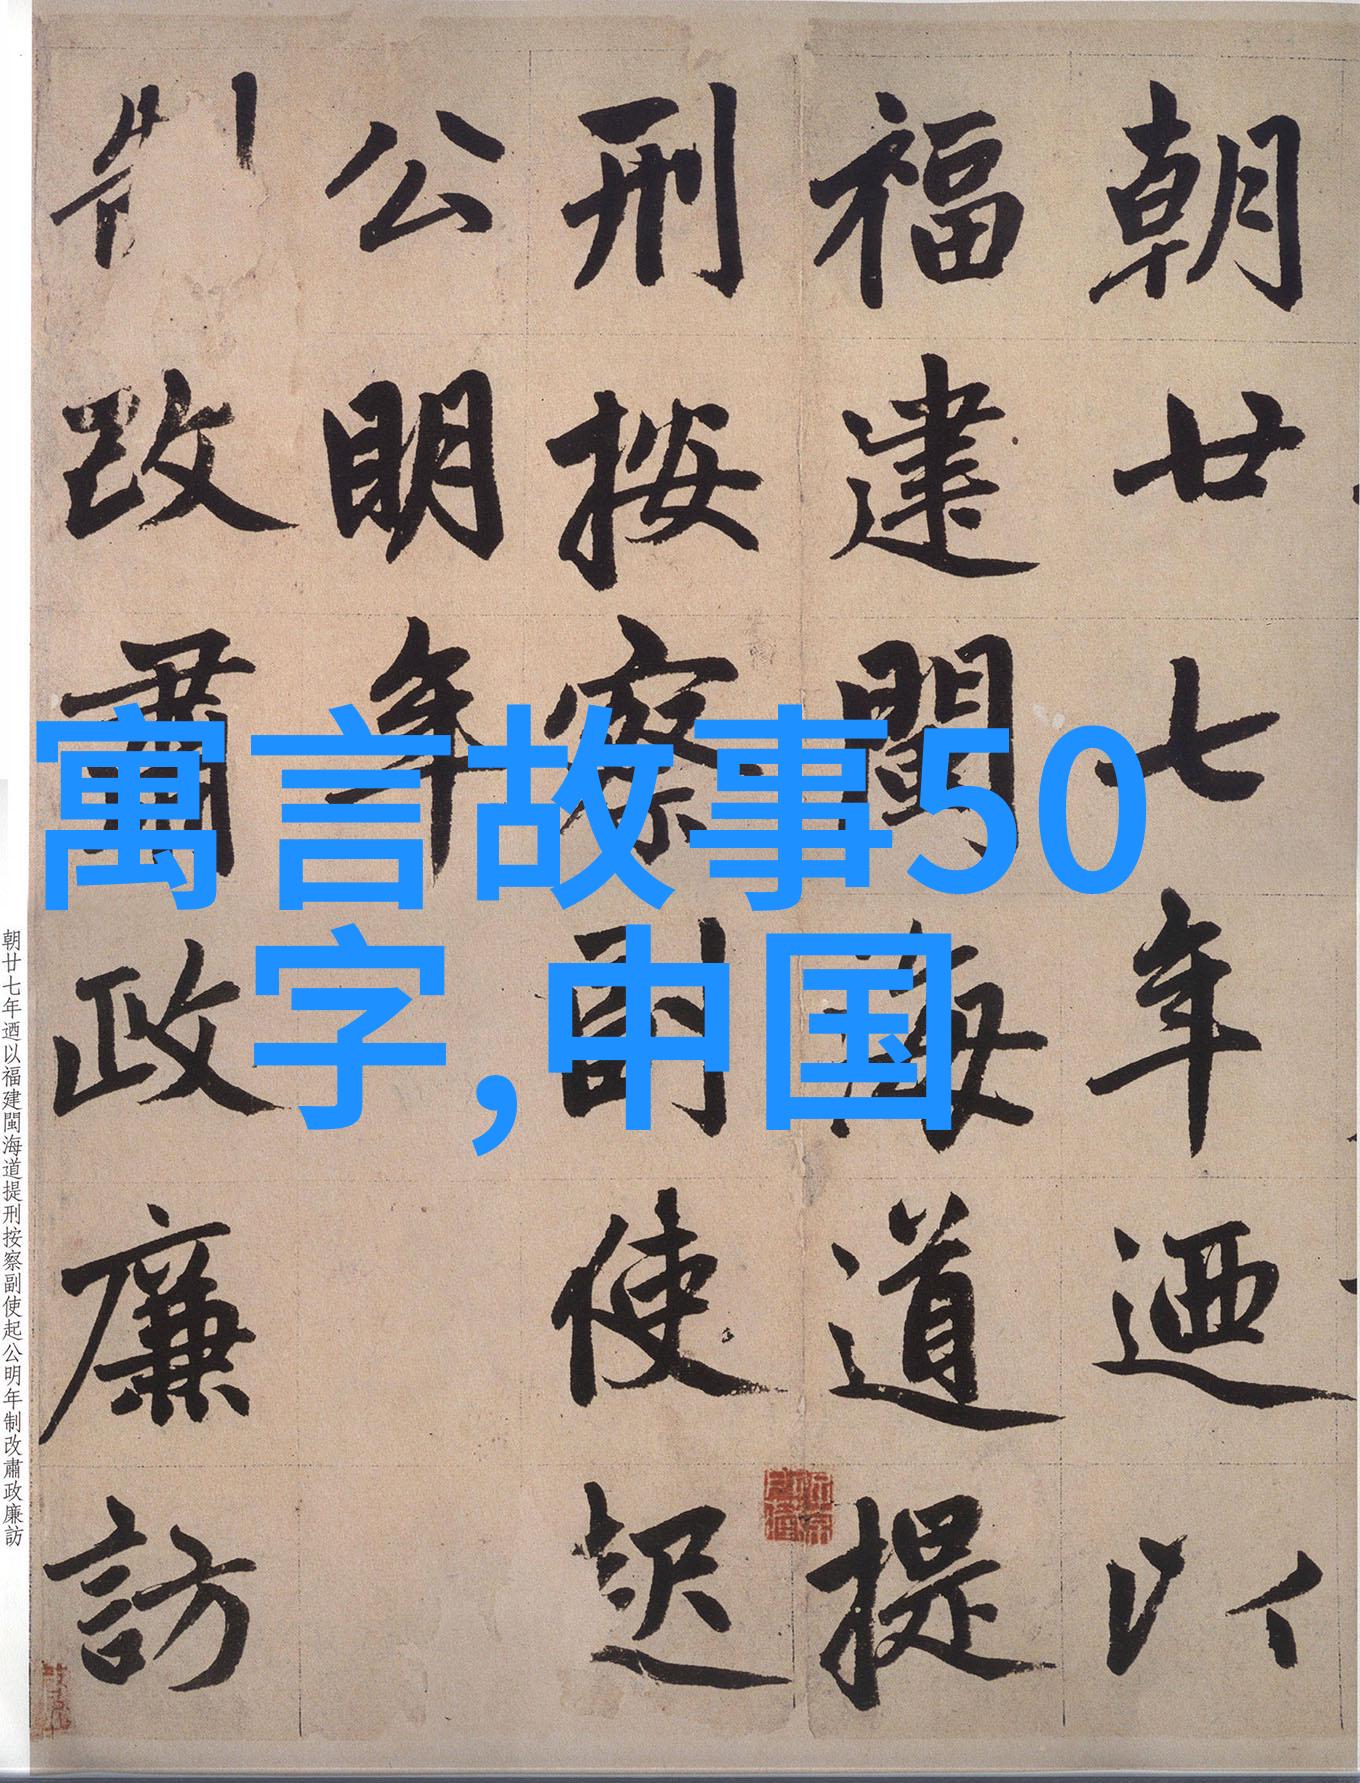 寓言故事50
字,中国
朝廿七年迺以
福建閩海道提
刑按察副使起
公明年
制改肅政廉訪
朝廿七年迺以福建閩海道提刑按察副使起公明年制改肅政廉訪